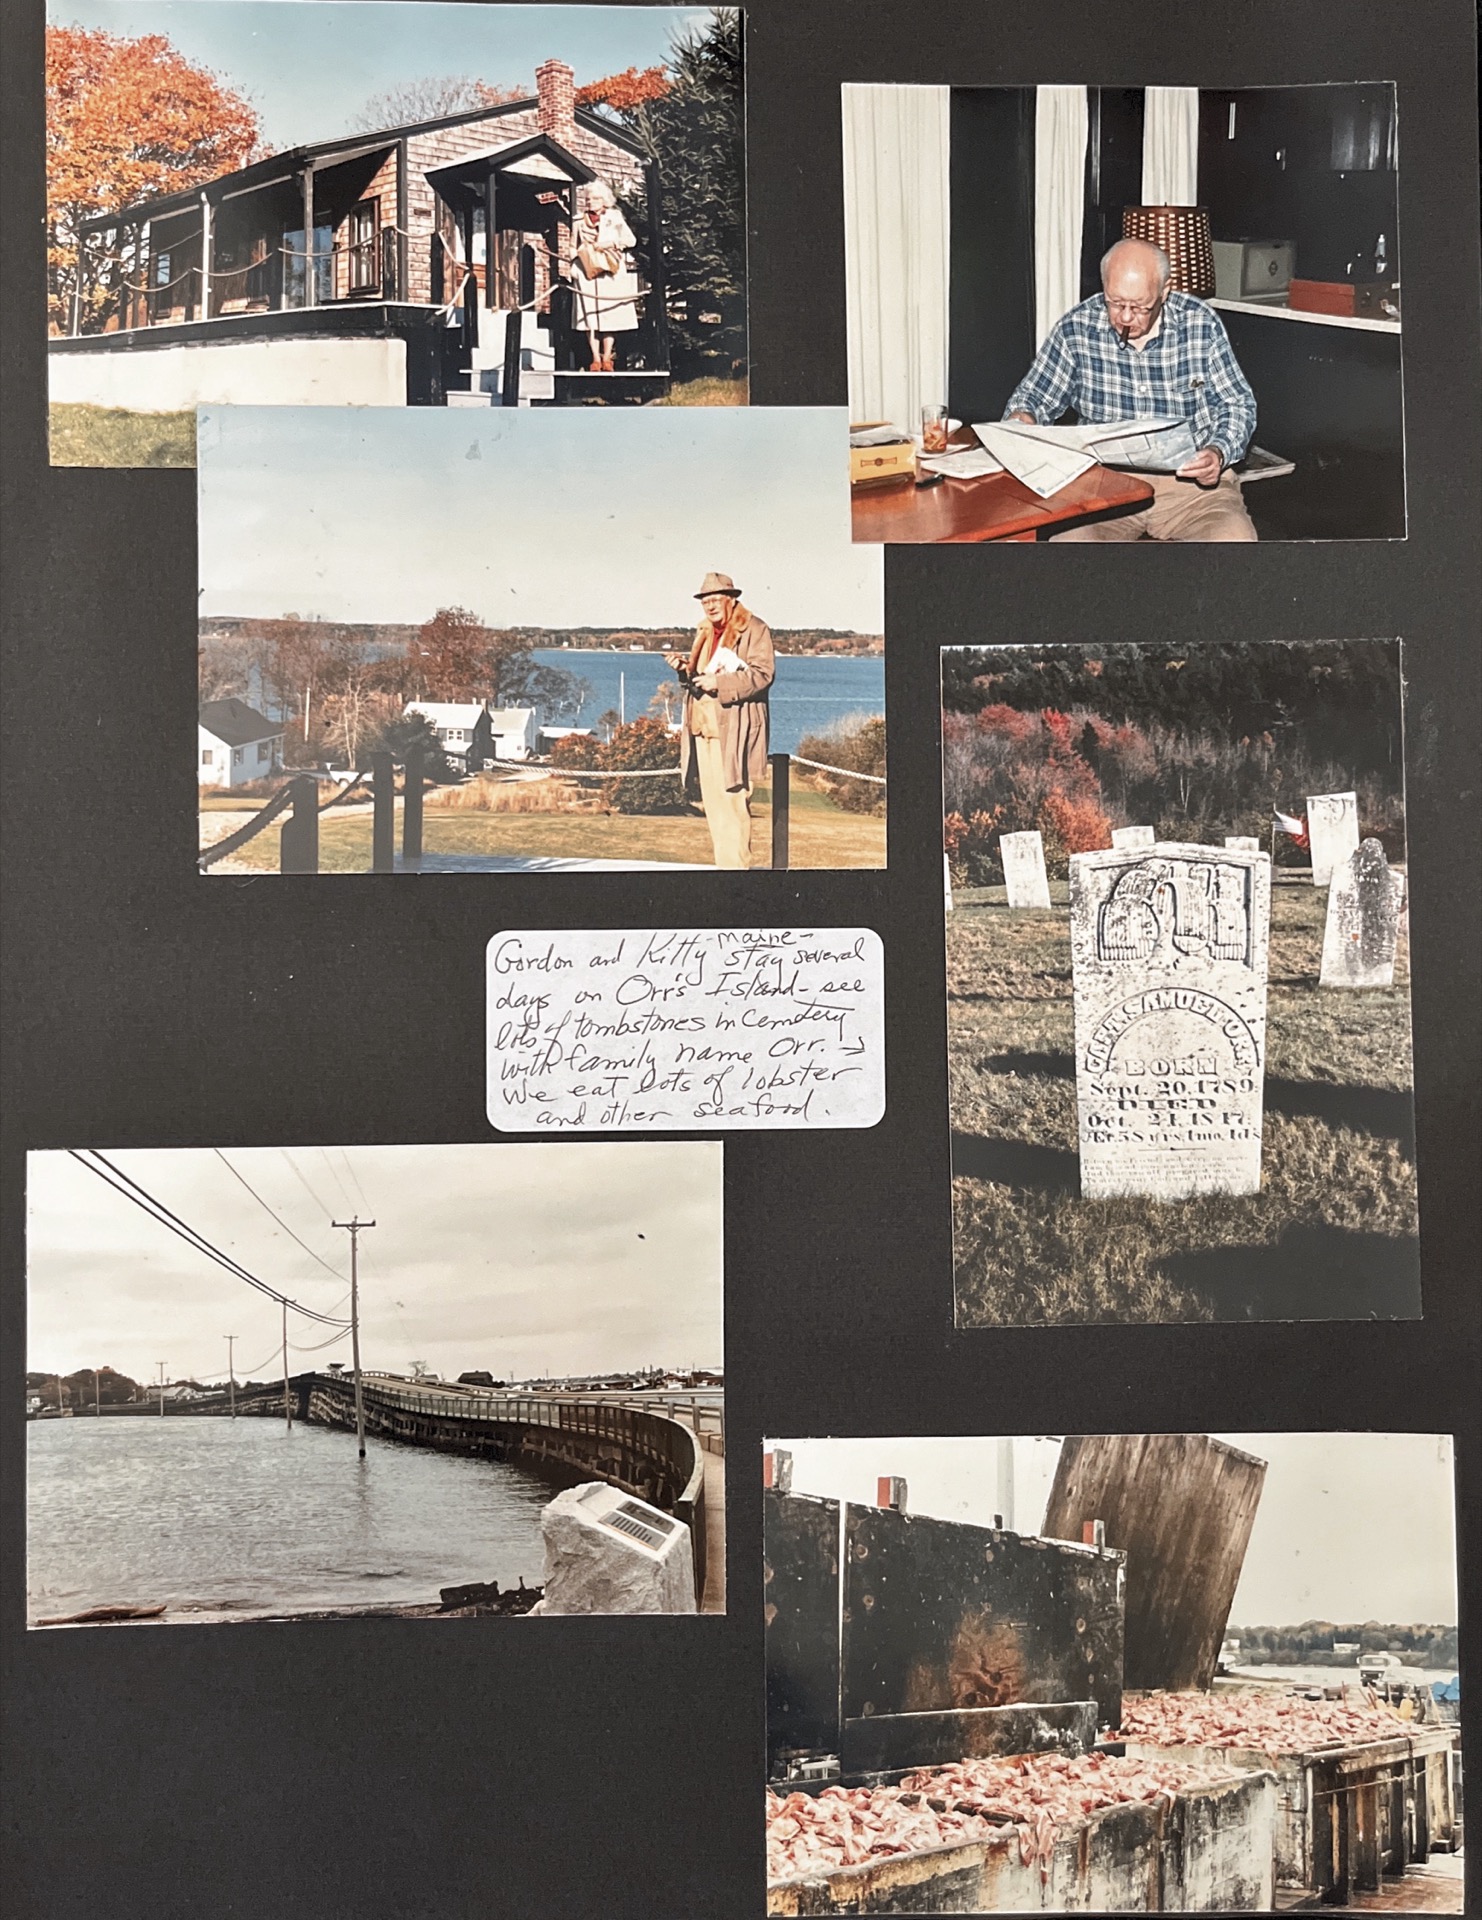 Gordon and Kitty -Maine-
stay several
days on Orr's Island - see
lots of tombstones in Cemetery
with family name Orr. →
We eat lots of lobster
and other seafood.
CAPT. SAMUEL ORR
BORN
Sept. 20, 1789
DIED
Oct. 24, 1847:
Æt. 58 yrs. 1 mo. 4 d's